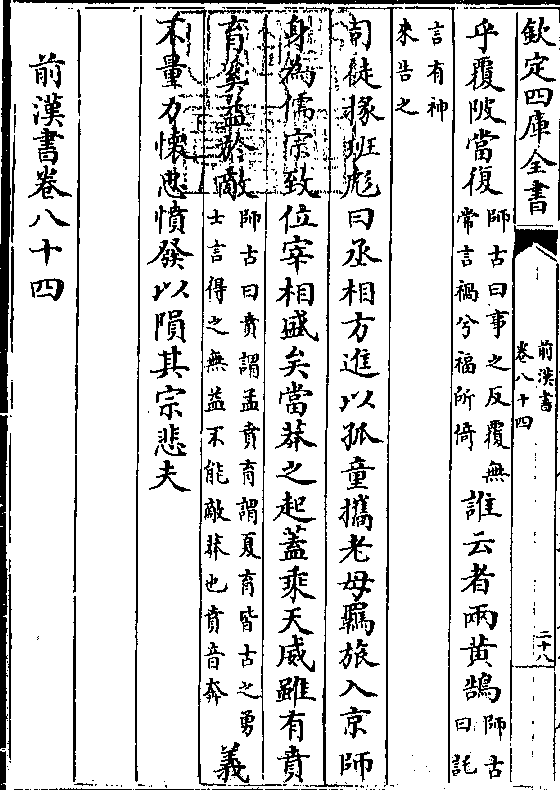 欽定四庫全書
前漢書
卷八十四
二十八
乎覆陂當復師古曰事之反覆無常言禍兮福所倚誰云者兩黃鵠師古曰託
言有神來告之
司徒掾班彪曰丞相方進以孤童攜老母羈旅入京師
身為儒宗致位宰相盛矣當莽之起蓋乘天威雖有賁
育奚益於敵師古曰賁謂孟賁育謂夏育皆古之勇士言得之無益不能敵莽也賁音奔義
不量力懷忠憤發以隕其宗悲夫
前漢書卷八十四